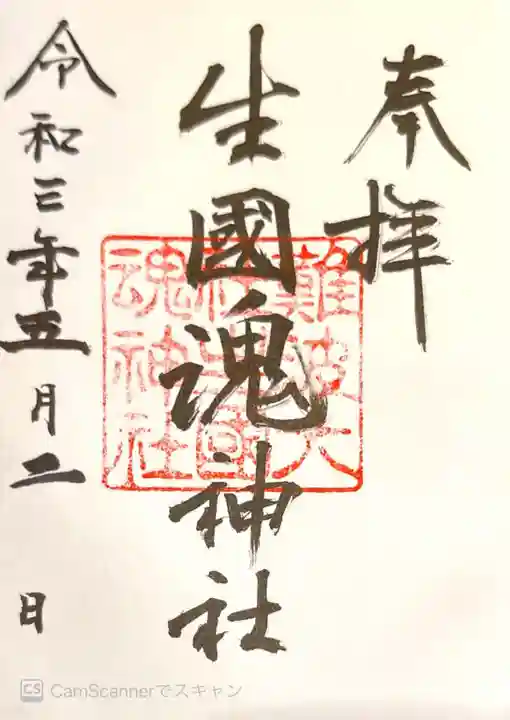 奉拝
生國魂神社
難波大
社生國
魂神社
令和三年五月二日
CS CamScannerでスキャン